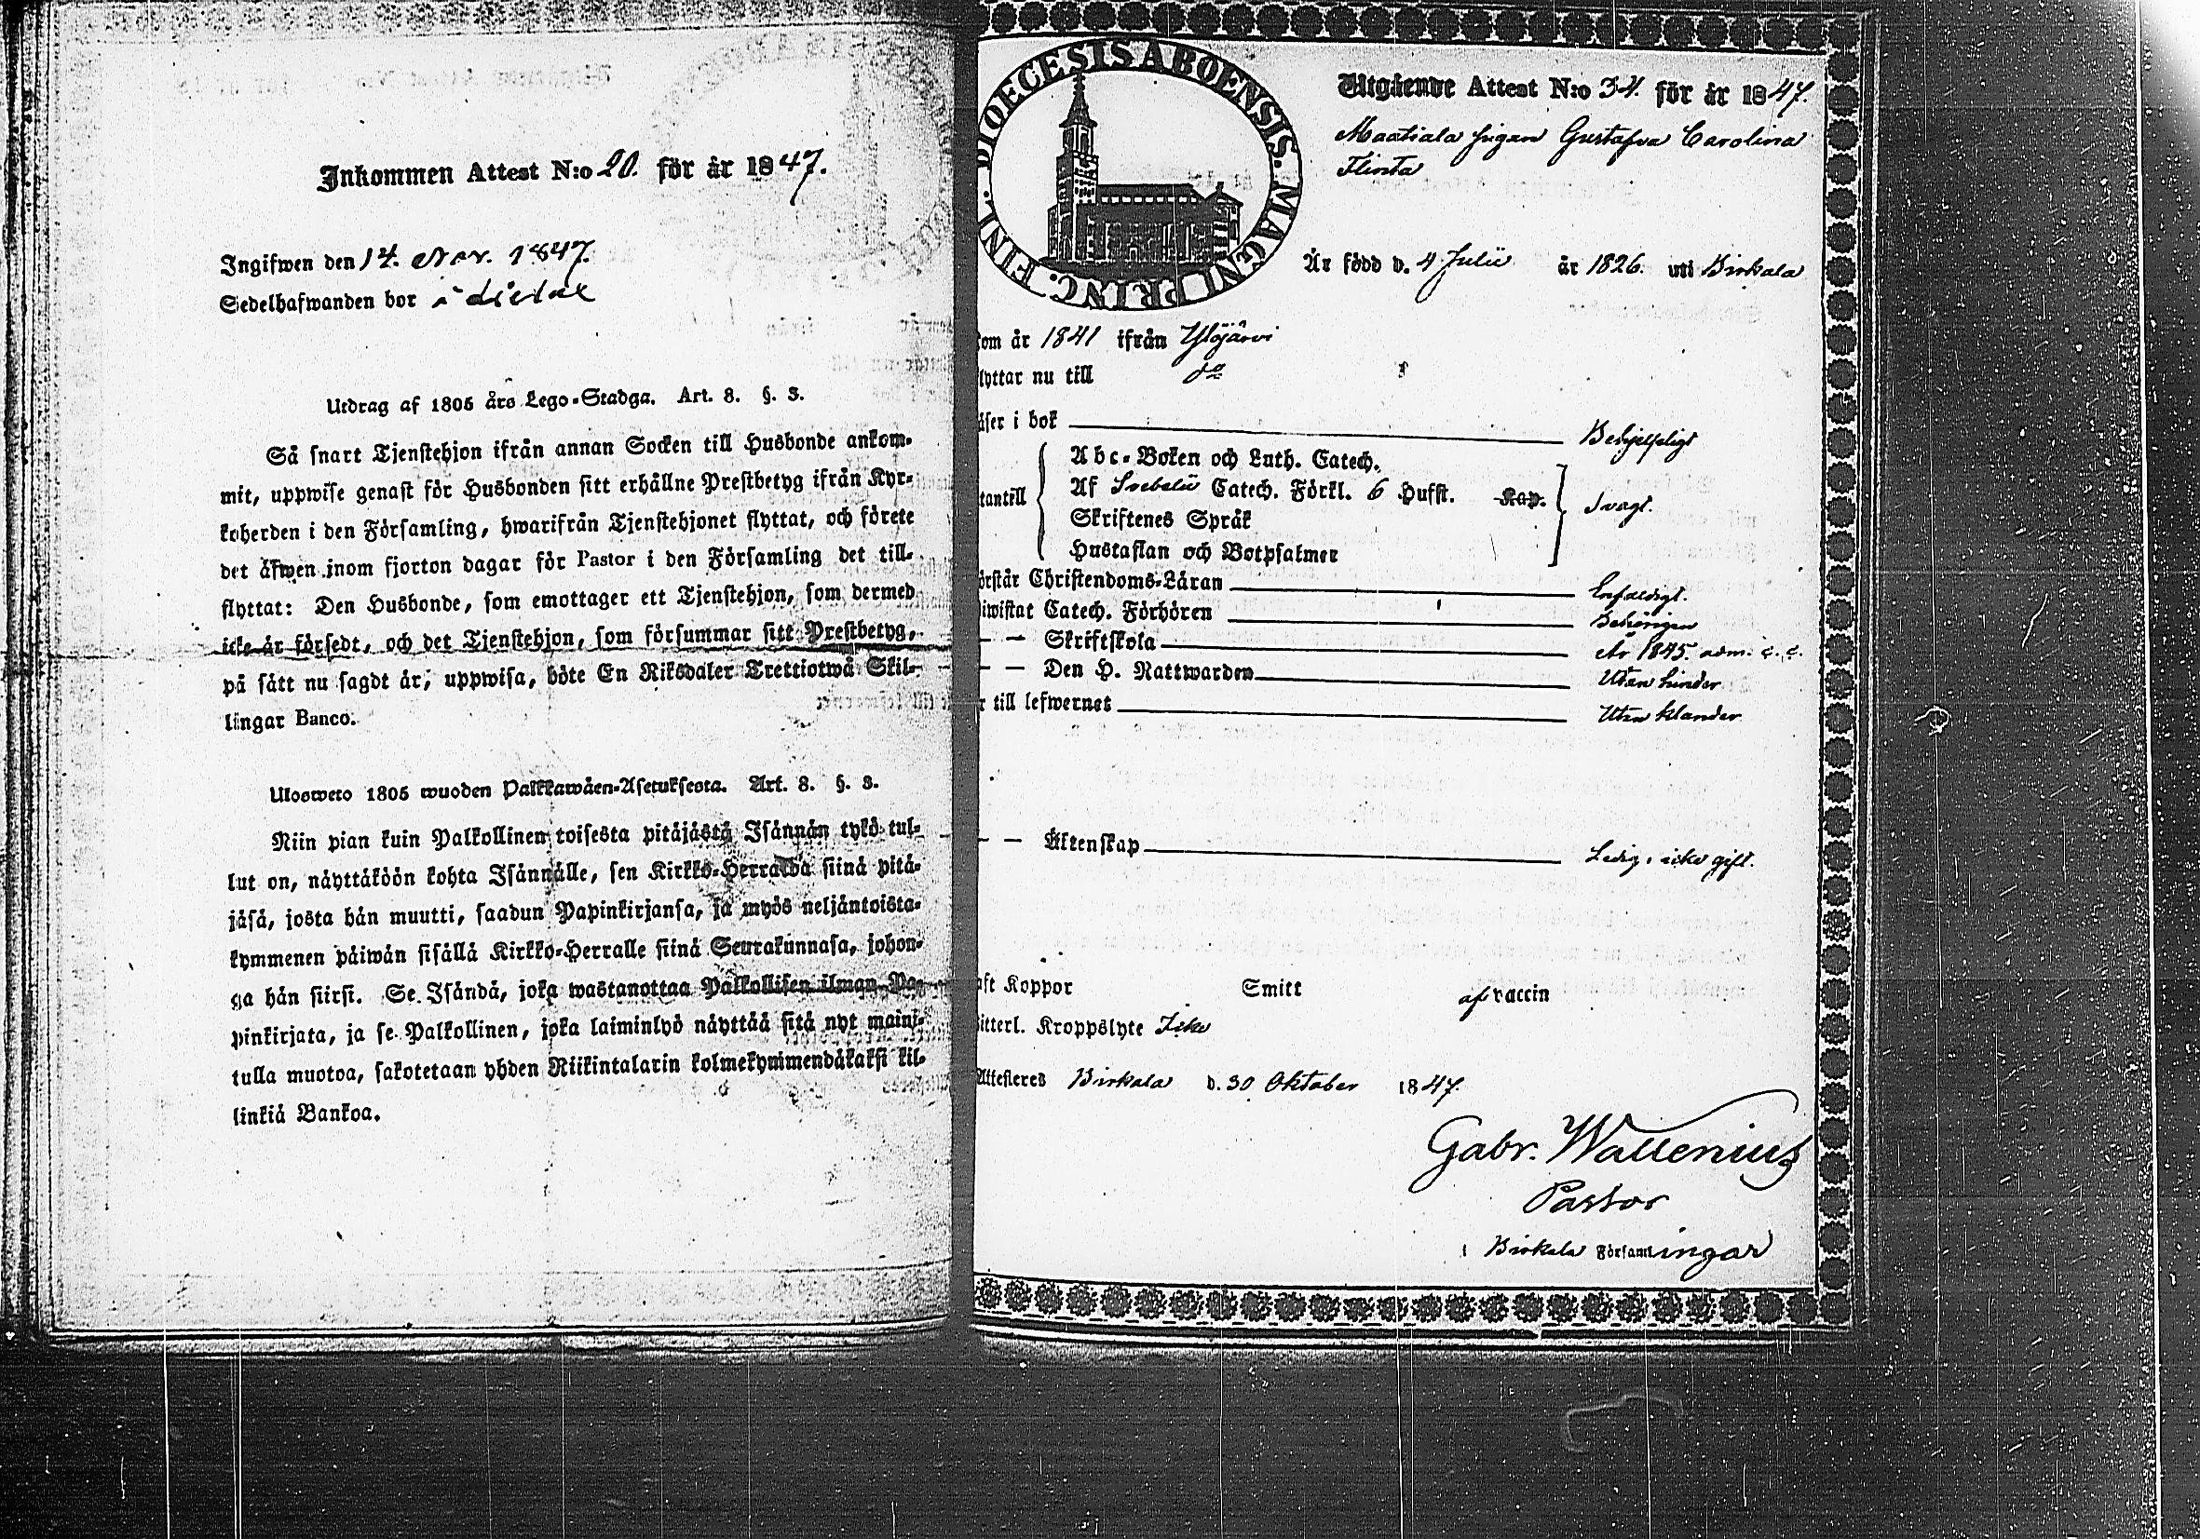 Inkommen Attest N:o 20. för år 1847.
Ingifwen den 14. Nov. 1847.
Sedelhafwanden bor å
Utdrag af 1805 års Lego-Stadga. Art. 8. §. 3.
Så snart Tjenstehjon ifrån annan Socken till Husbonde ankom-
mit, uppwise genast för Husbonden sitt erhållne Prestbetyg ifrån Kyr-
koherden i den Församling, hwarifrån Tjenstehjonet flyttat, och förete
det äfwen inom fjorton dagar för Pastor i den Församling det till-
flyttat: Den Husbonde, som emottager ett Tjenstehjon, som dermed
icke är försedt, och det Tjenstehjon, som försummar sitt Prestbetyg,
på sätt nu sagdt är, uppwisa, böte En Riksdaler Trettiotwå Skil-
lingar Banco.
Ulosweto 1805 wuoden Palkkawäen-Asetuksesta. Art. 8. §. 3.
Niin pian kuin Palkollinen toisesta pitäjästä Isännän tykö tul-
lut on, näyttäköön kohta Isännälle, sen Kirkko-Herralda siinä pitä-
jäsä, josta hän muutti, saadun Papinkirjansa, ja myös neljäntoista-
kymmenen päiwän sisällä Kirkko-Herralle siinä Seurakunnasa, johon-
ga hän siirsi. Se Isändä, joka wastanottaa Palkollisen ilman Pa-
pinkirjata, ja se Palkollinen, joka laiminlyö näyttää sitä nyt maini-
tulla muotoa, sakotetaan yhden Riikintalarin kolmekymmendäkaksi kil-
linkiä Bankoa.
DIOECESIS ABOENSIS. MAGNI PRINC. FINL.
Utgående Attest N:o 34. för år 1847.
Maatiala pigan Gustafva Carolina
Flinta
Är född d. 4 Julii år 1826. uti Birkala
kom år 1841 ifrån Ylöjärvi
lyttar nu till do
äser i bok Behjelpligt
Abc-Boken och Luth. Catech.
tantill Af Svebelii Catech. Förkl. 6 Hufst. Kap. Svagt.
Skriftenes Språk
Hustaflan och Botpsalmer
örstår Christendoms-Läran Enfaldigt.
iwistat Catech. Förhören Behörigen
— — Skriftskola År 1845. adm. s. c.
— — Den H. Nattwarden Utan hinder
r till lefwernet Utan klander
— — Äktenskap Ledig, icke gift.
aft Koppor Smitt af vaccin
itterl. Kroppslyte Icke
Attesteres Birkala d. 30 Oktober 1847.
Gabr. Wallenius
Pastor
i Birkala Församlingar